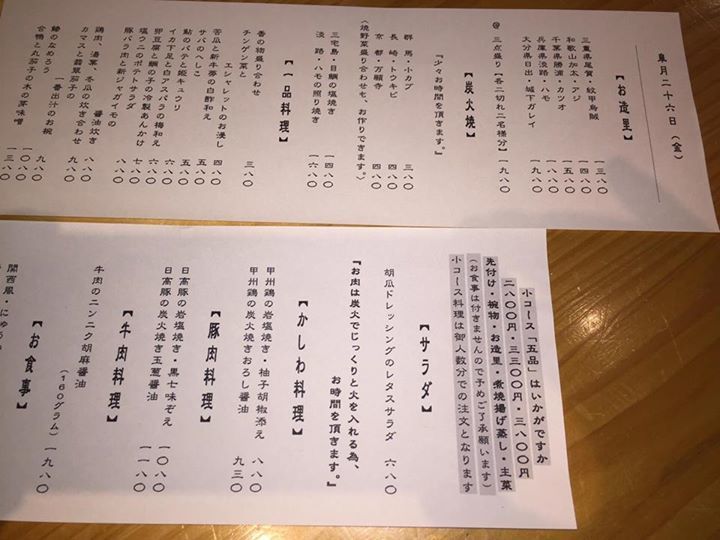 皐月二十六日(金)
【お造里】
三重県尾鷲・紋甲烏賊 一三八〇
和歌山加太・アジ 一五八〇
千葉県勝浦・カツオ 一四八〇
兵庫県淡路・ハモ 一九八〇
大分県日出・城下ガレイ 一八八〇
@三点盛り【各二切れ二名様分】 一九八〇
【炭火焼】
『少々お時間を頂きます。』
群馬・小カブ 三八〇
長崎・トウキビ 四八〇
京都・万願寺 四八〇
(焼野菜盛り合わせも、お作りできます。)
三宅島・目鯛の塩焼き 一四八〇
淡路・ハモの照り焼き 一六八〇
【一品料理】
香の物盛り合わせ 三八〇
チンゲン菜と
エシャレットのお浸し 四八〇
苦瓜と新牛蒡の白酢和え 五八〇
サバのへしこ 五八〇
鮎のパテと姫キュウリ 六八〇
イカ下足と白アスパラの梅和え 六八〇
卵豆腐と鯛の子の冷製あんかけ 六八〇
塩ウニのポテトサラダ 七八〇
豚バラ肉と新ジャガイモの
醤油炊き 八八〇
鶏肉、湯葉、冬瓜の炊き合わせ 八八〇
カマスと翡翠茄子の
一番出汁のお椀 九八〇
鯵のなめろう 九八〇
合鴨と丸茄子の木の芽味噌 一三八〇
小コース「五品」はいかがですか
二八〇〇円・三三〇〇円・三八〇〇円
先付け・椀物・お造里・煮焼揚げ蒸し・主菜
(お食事は付きませんので予めご了承願います)
小コース料理は御人数分での注文となります
【サラダ】
胡瓜ドレッシングのレタスサラダ 六八〇
『お肉は炭火でじっくりと火を入れる為、
お時間を頂きます。』
【かしわ料理】
甲州鶏の岩塩焼き・柚子胡椒添え 八八〇
甲州鶏の炭火焼きおろし醤油 九三〇
【豚肉料理】
日高豚の岩塩焼き・黒七味ぞえ 一〇八〇
日高豚の炭火焼き玉葱醤油 一一八〇
【牛肉料理】
牛肉のニンニク胡麻醤油
(160グラム) 一九八〇
【お食事】
関西風・にゅう